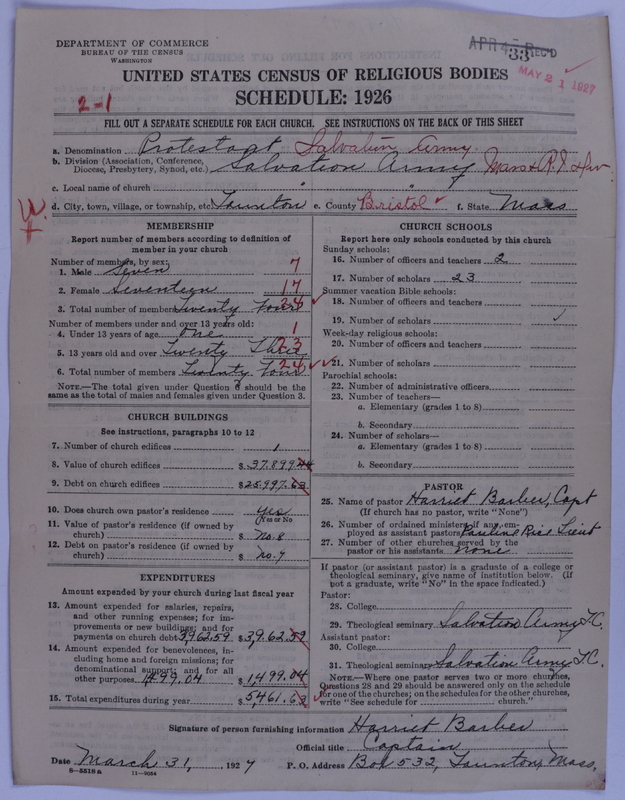 DEPARTMENT OF COMMERCE
BUREAU OF THE CENSUS
WASHINGTON
APR 4 REC'D
33
MAY 21 1927
UNITED STATES CENSUS OF RELIGIOUS BODIES
2-1
SCHEDULE: 1926
FILL OUT A SEPARATE SCHEDULE FOR EACH CHURCH. SEE INSTRUCTIONS ON THE BACK OF THIS SHEET
a. Denomination Protestant Salvation Army.
b. Division (Association, Conference, Diocese, Presbytery, Synod, etc.) Salvation Army Mass & R.I. Div
c. Local name of church " "
d. City, town, village, or township, etc. Taunton e. County Bristol f. State Mass
MEMBERSHIP
Report number of members according to definition of member in your church
Number of members, by sex:
1. Male Seven 7
2. Female Seventeen 17
3. Total number of members Twenty Four 24
Number of members under and over 13 years old:
4. Under 13 years of age one 1
5. 13 years old and over Twenty Three 23
6. Total number of members Twenty Four 24
NOTE.—The total given under Question 6 should be the same as the total of males and females given under Question 3.
CHURCH BUILDINGS
See instructions, paragraphs 10 to 12
7. Number of church edifices 1
8. Value of church edifices $37,899
9. Debt on church edifices $25,997.63
10. Does church own pastor's residence? yes
(Yes or No)
11. Value of pastor's residence (if owned by church) $ no. 8
12. Debt on pastor's residence (if owned by church) $ no. 9
EXPENDITURES
Amount expended by your church during last fiscal year
13. Amount expended for salaries, repairs, and other running expenses; for improvements or new buildings; and for payments on church debt 3962.59 $3,962.59
14. Amount expended for benevolences, including home and foreign missions; for denominational support; and for all other purposes 1499.04 $1,499.04
15. Total expenditures during year $5,461.63
CHURCH SCHOOLS
Report here only schools conducted by this church
Sunday schools:
16. Number of officers and teachers 2
17. Number of scholars 23
Summer vacation Bible schools:
18. Number of officers and teachers
19. Number of scholars
Week-day religious schools:
20. Number of officers and teachers
21. Number of scholars
Parochial schools:
22. Number of administrative officers
23. Number of teachers—
a. Elementary (grades 1 to 8)
b. Secondary
24. Number of scholars—
a. Elementary (grades 1 to 8)
b. Secondary
PASTOR
25. Name of pastor Harriet Barber, Capt
(If church has no pastor, write "None")
26. Number of ordained ministers, if any, employed as assistant pastors Pauline Rice Lieut
27. Number of other churches served by the pastor or his assistants none
If pastor (or assistant pastor) is a graduate of a college or theological seminary, give name of institution below. (If not a graduate, write "No" in the space indicated.)
Pastor:
28. College
29. Theological seminary Salvation Army T.C.
Assistant pastor:
30. College
31. Theological seminary Salvation Army T.C.
NOTE.—Where one pastor serves two or more churches, Questions 28 and 29 should be answered only on the schedule for one of the churches; on the schedules for the other churches, write "See schedule for church."
Signature of person furnishing information Harriet Barber
Official title Captain
Date March 31, 1927 P. O. Address Box 532, Taunton, Mass.
8—5518 a 11—9054